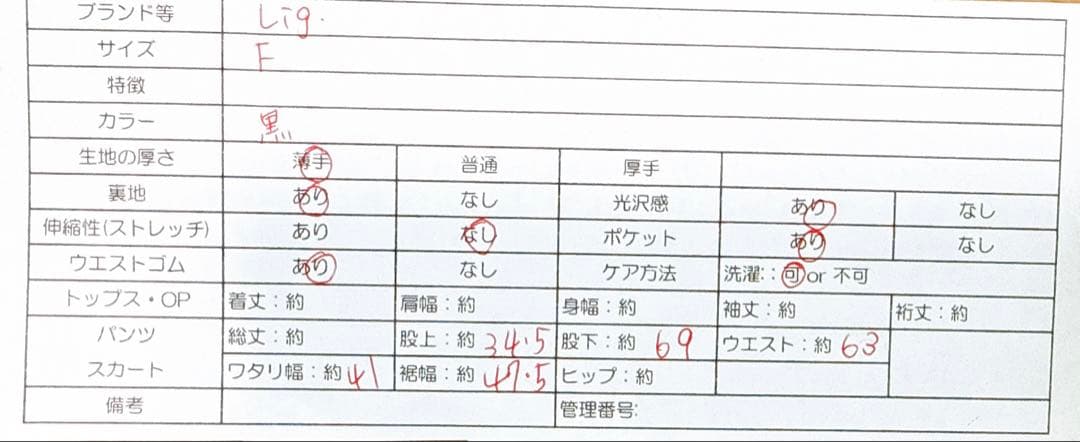 ブランド等 Lig.
サイズ F
特徴
カラー 黒
生地の厚さ 薄手 普通 厚手
裏地 あり なし 光沢感 あり なし
伸縮性(ストレッチ) あり なし ポケット あり なし
ウエストゴム あり なし ケア方法 洗濯：可 or 不可
トップス・OP 着丈：約 肩幅：約 身幅：約 袖丈：約 裄丈：約
パンツ 総丈：約 股上：約 34.5 股下：約 69 ウエスト：約 63
スカート ワタリ幅：約 41 裾幅：約 47.5 ヒップ：約
備考 管理番号: